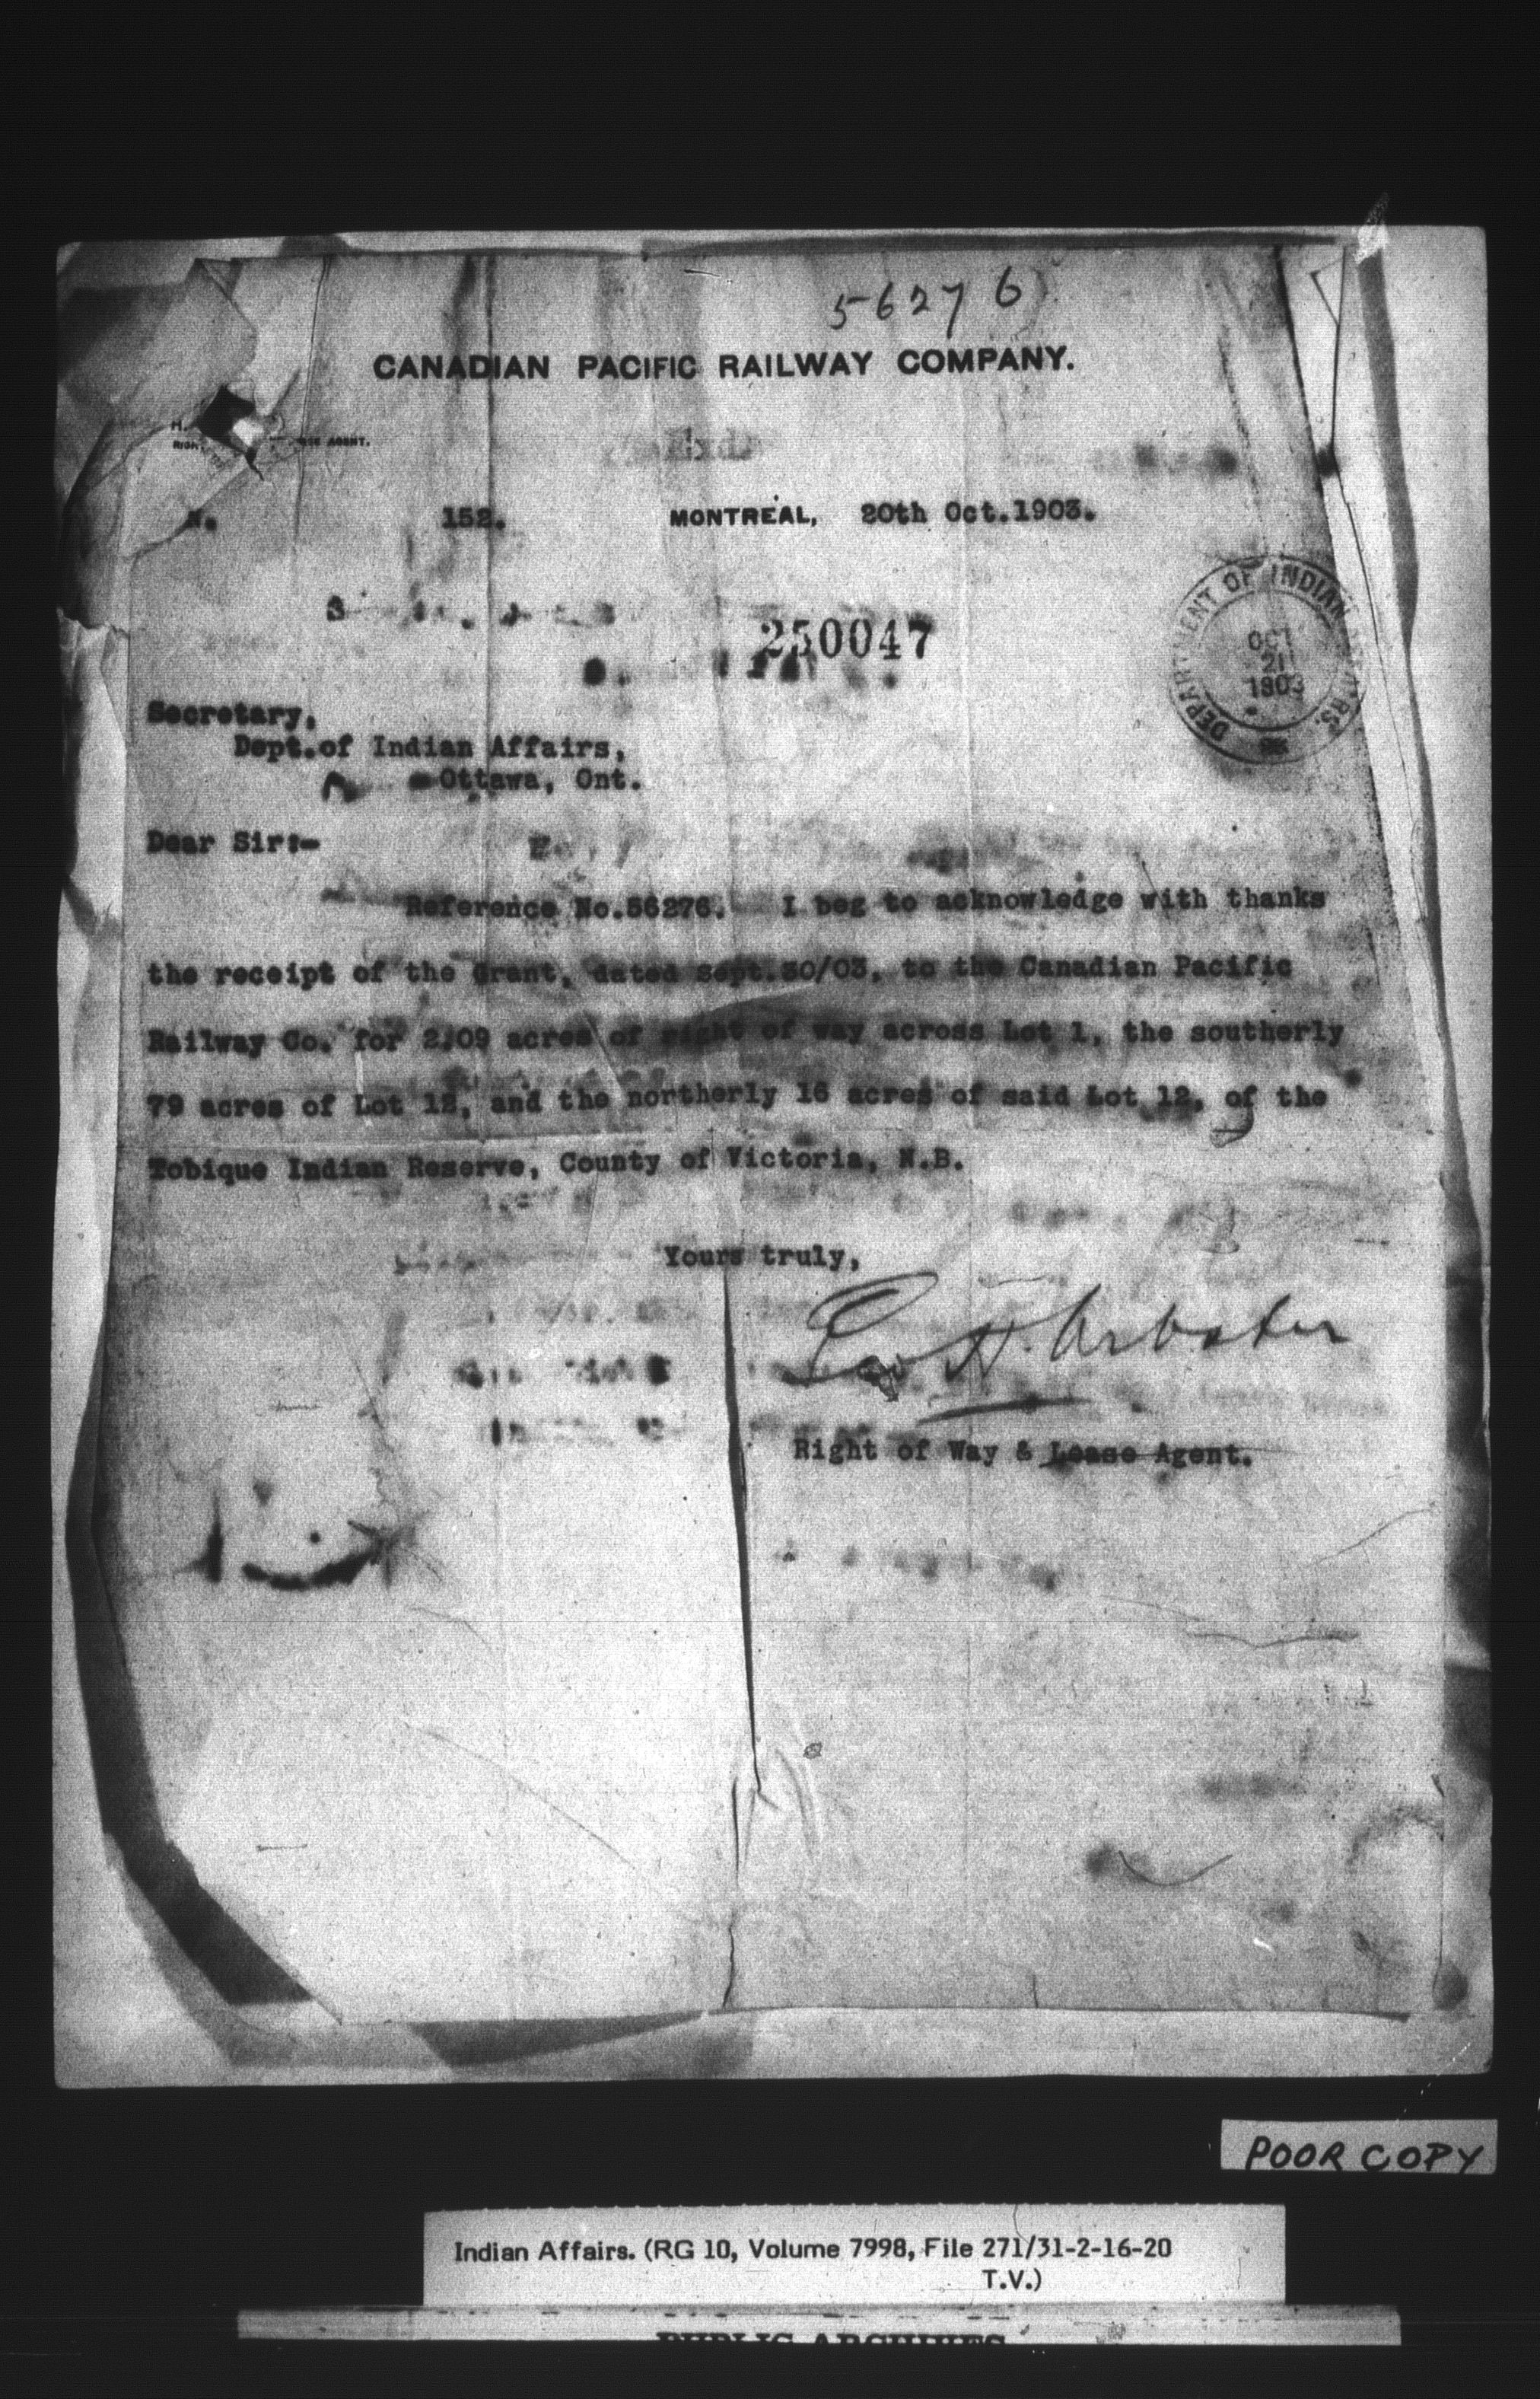 56276
CANADIAN PACIFIC RAILWAY COMPANY.
AGENT.
N. 152. MONTREAL, 20th Oct.1903.
250047
DEPARTMENT OF INDIAN AFFAIRS.
OCT
21
1903
Secretary,
Dept.of Indian Affairs,
Ottawa, Ont.
Dear Sir:-
Reference No.56276. I beg to acknowledge with thanks
the receipt of the Grant, dated Sept.30/03, to the Canadian Pacific
Railway Co. for 2.09 acres of right of way across Lot 1, the southerly
79 acres of Lot 12, and the northerly 16 acres of said Lot 12, of the
Tobique Indian Reserve, County of Victoria, N.B.
Yours truly,
Right of Way & Lease Agent.
POOR COPY
Indian Affairs. (RG 10, Volume 7998, File 271/31-2-16-20
T.V.)
PUBLIC ARCHIVES